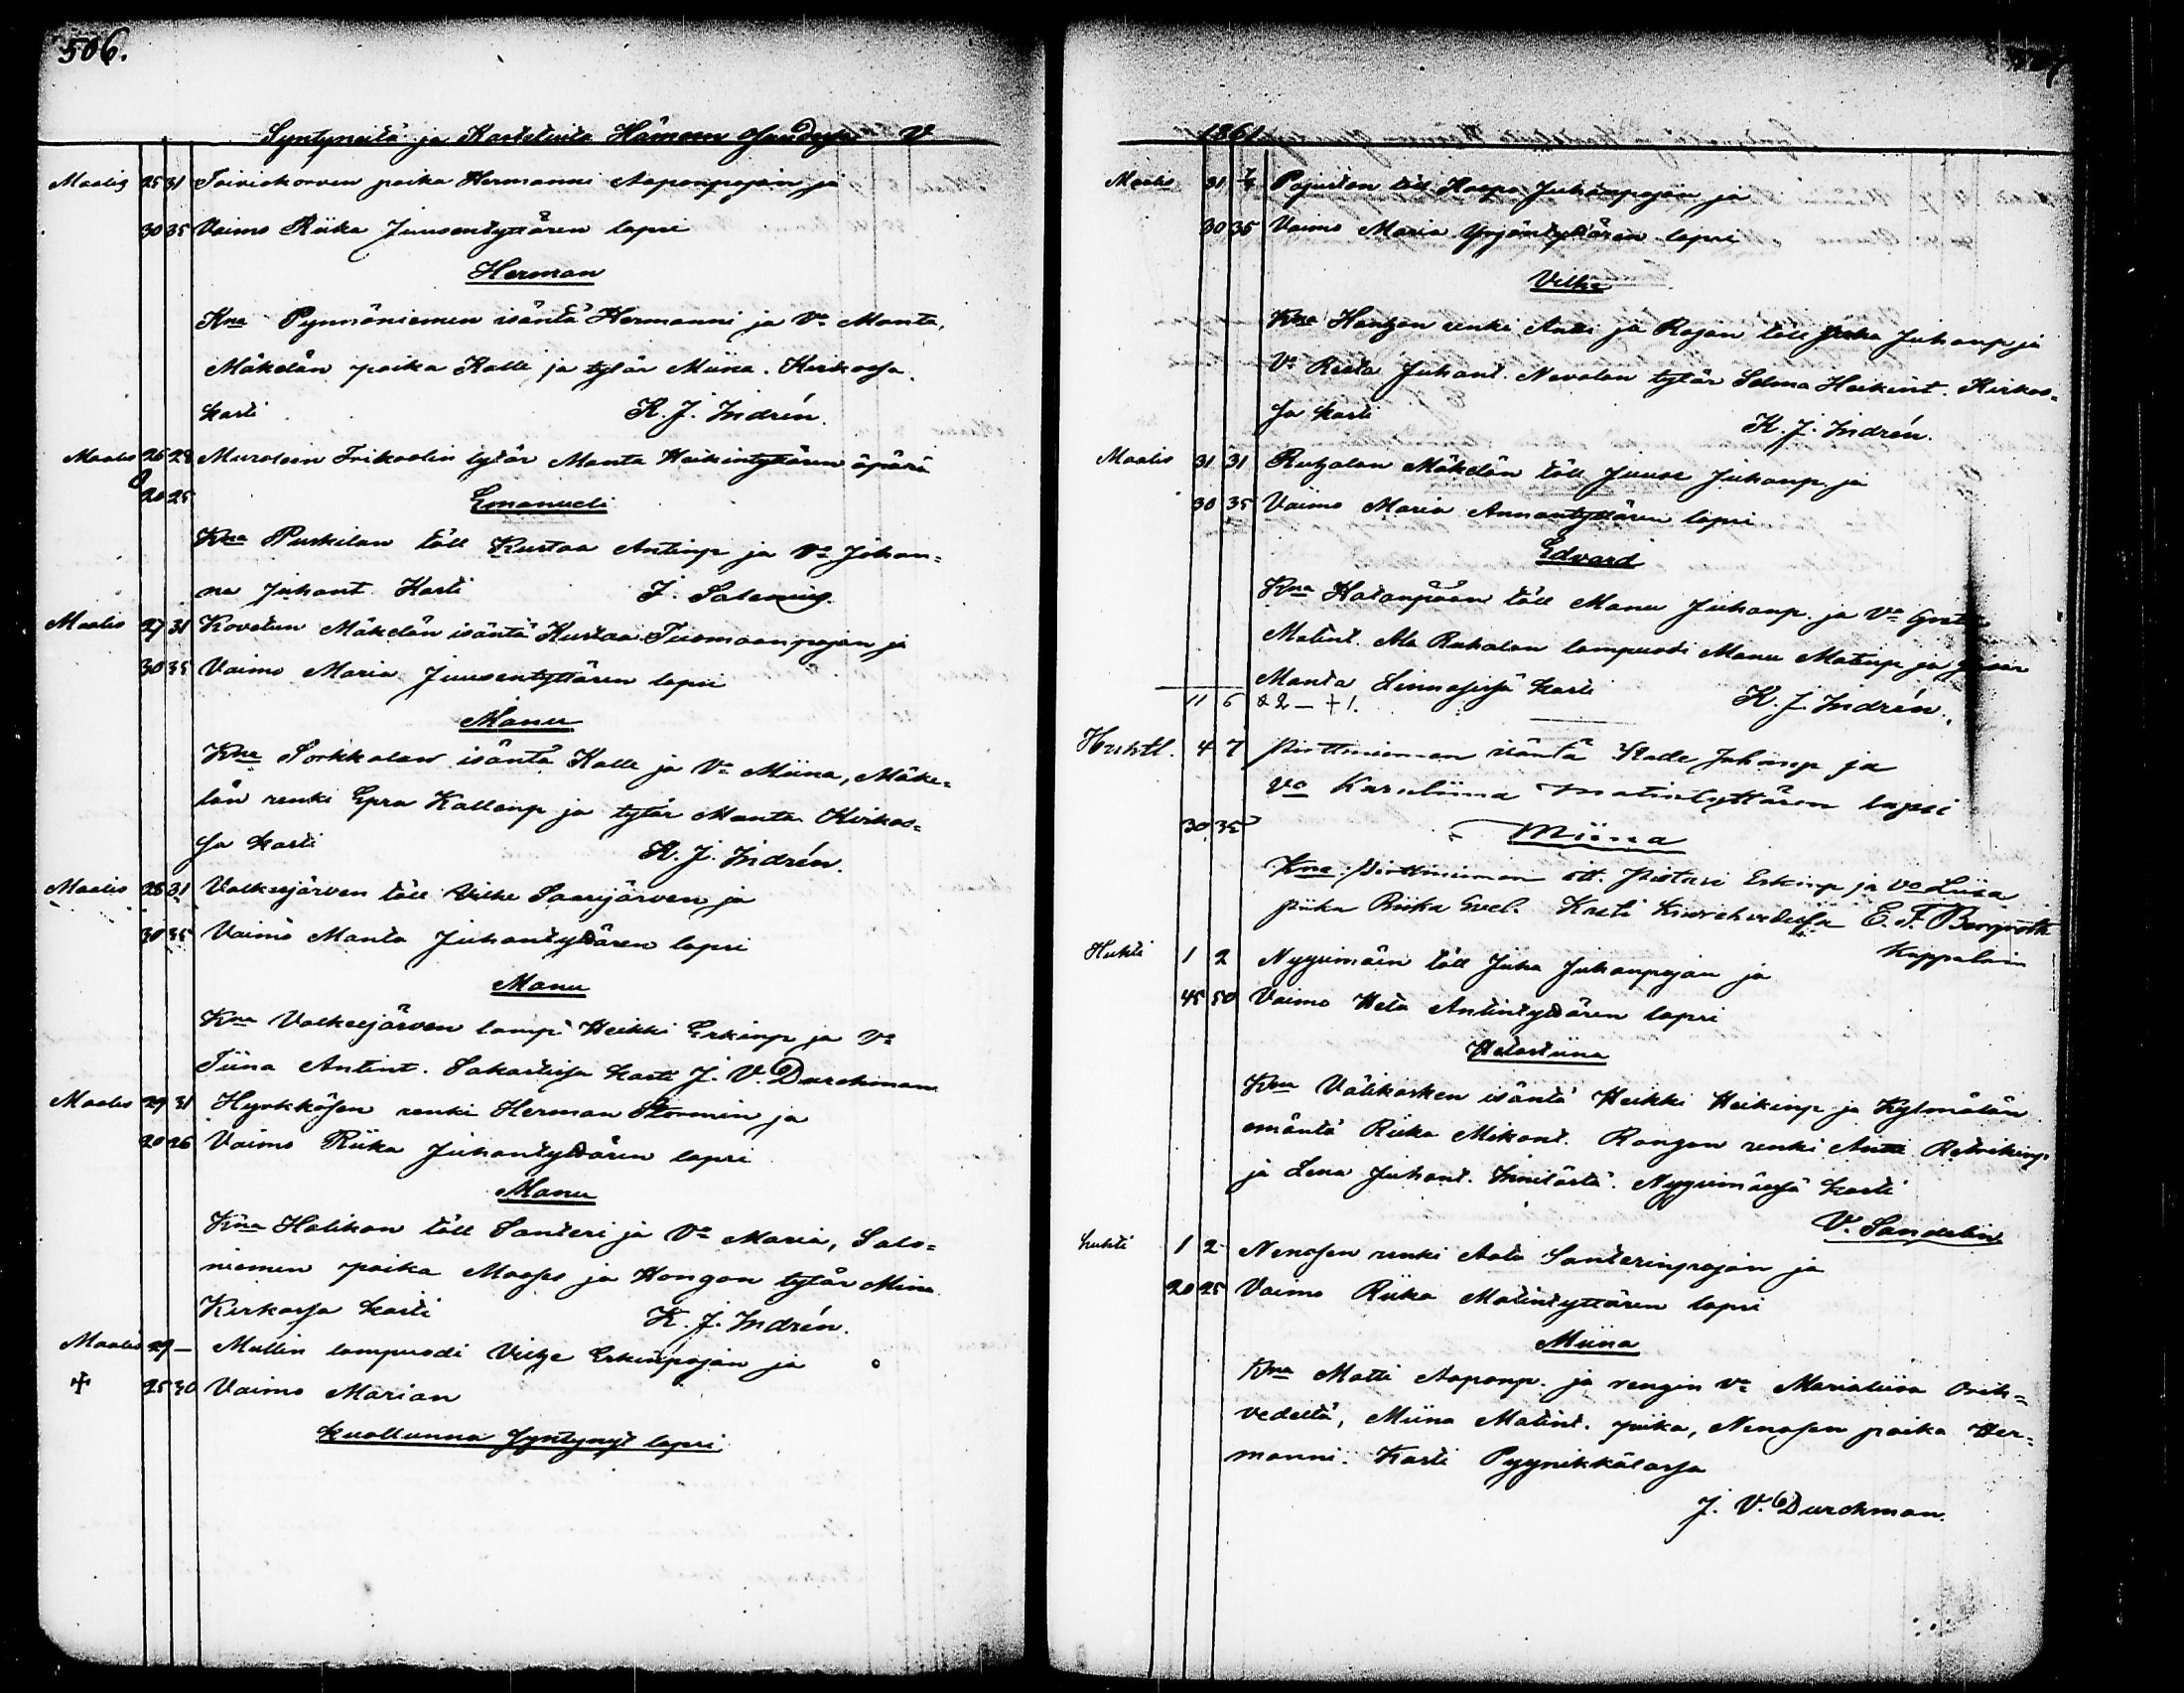 506.
Syntyneitä ja Kastetuita Hämeen V
Maalis 25 31 Toiviskorven poika Hermanni Aaponpojan ja
30 35 Vaimo Riika Juusentyttären lapsi
Herman
Kna Pynnöniemen isäntä Hermanni ja Va Manta,
Mäkelän poika Kalle ja tytär Miina. Kirkossa
kasti K. J. Indrén.
Maalis 26 28 Muroleen Frikoolin tytär Manta Heikintyttären äpärä
20 25 Emanueli
Kna Puskilan töll Kustaa Antinp ja Va Johan=
na Juhant. Kasti J. Salenius.
Maalis 27 31 Kovelun Mäkelän isäntä Kustaa Tuomaanpojan ja
30 35 Vaimo Maria Juusentyttären lapsi
Manu
Kna Sorkkalan isäntä Kalle ja Va Miina, Mäke=
län renki Epra Kallenp ja tytär Manta Kirkos=
sa kasti K. J. Indrén.
Maalis 28 31 Valkeejärven töll Vilke Saarijärven ja
30 35 Vaimo Manta Juhantyttären lapsi
Manu
Kna Valkeejärven lamp Heikki Erkinp ja Va
Tiina Antint. Sakastissa kasti J. V. Durchman
Maalis 29 31 Hyrkkösen renki Herman Stormin ja
20 26 Vaimo Riika Juhantyttären lapsi
Manu
Kna Halikan töll Santeri ja Va Maria, Salo=
niemen poika Mooses ja Hongon tytär Miina
Kirkossa kasti K. J. Indrén.
Maalis 29 — Mullin lampuodi Vilge Erkinpojan ja
25 30 Vaimo Marian
kuollunna syntynyt lapsi
1861
Maalis 31 7/4 Pajuston töll Kaapo Juhanpojan ja
30 35 Vaimo Maria Yrjäntyttären lapsi
Vilke
Kna Hongon renki Antti ja Rajan töll Juha Juhanp ja
Va Reeta Juhant. Nevalan tytär Selma Heikint. Kirkos=
sa kasti K. J. Indrén.
Maalis 31 31 Ruhalan Mäkelän töll Juuse Juhanp. ja
30 35 Vaimo Maria Annantyttären lapsi
Edvard
Kna Hatanpään töll Manu Juhanp. ja Va Greta
Matint. Ala Ruhalan lampuodi Manu Matinp ja tytär
Manta Linnasissä kasti K. J. Indrén.
11 6 2 — + 1.
Huhtl. 4 7 Pirttiniemen isäntä Kalle Juhanp ja
Va Karoliina Matintyttären lapsi
30 35 Miina
Kna: Pirttiniemen itt. Pietari Erkinp ja Va Liisa
piika Riika Evel. Kasti Kuorehvedessä E. F. Bergroth
Kappalain
Huhti 1 2 Nygrimäin töll Juha Juhanpojan ja
45 50 Vaimo Heta Antintyttären lapsi
Hetastiina
Kna Välikosken isäntä Heikki Heikinp ja Kylmälän
emäntä Riika Mikont. Rongan renki Antti
ja Lena Juhant. Nygrimässä kasti
V. Sandelin
Huhti 1 2 Nenosen renki Aato Santerinpojan ja
20 25 Vaimo Riika Matintyttären lapsi
Miina
Kna Matti Aaponp. ja rengin Va Marialiisa Orih=
vedeltä, Miina Matint. piika, Nenosen poika Her=
manni. Kasti Pyynikkälässä
J. V. Durchman.